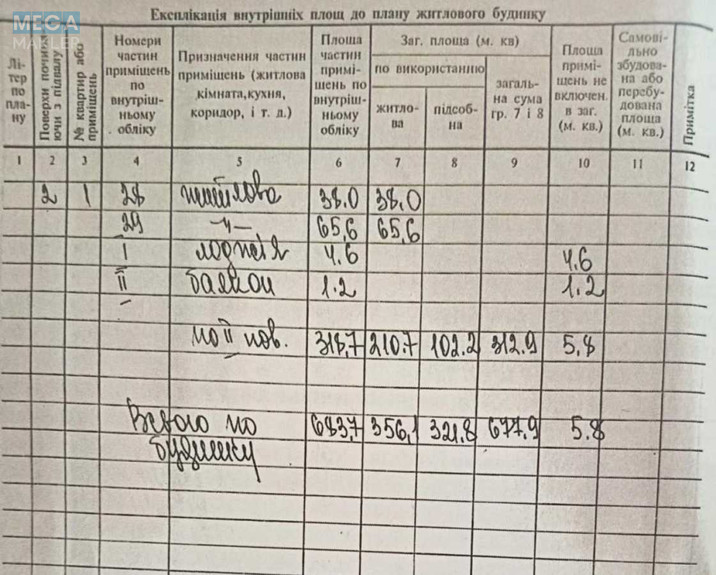 MEGA
МАКЛЕР
Експлікація внутрішніх площ до плану житлового будинку
Лі-
тер
по
пла-
ну
Поверхи почина-
ючи з підвалу
№ квартир або
приміщень
Номери
частин
приміщень
по
внутріш-
ньому
обліку
Призначення частин
приміщень (житлова
кімната,кухня,
коридор, і т. д.)
Площа
частин
примі-
щень по
внутріш-
ньому
обліку
Заг. площа (м. кв)
по використанню
житло-
ва
підсоб-
на
загаль-
на сума
гр. 7 і 8
Площа
примі-
щень не
включен.
в заг.
(м. кв.)
Самові-
льно
збудова-
на або
перебу-
дована
площа
(м. кв.)
Примітка
1 2 3 4 5 6 7 8 9 10 11 12
2 1 28 житлова 38.0 38.0
29 -"- 65,6 65,6
I лоджія 4.6 4.6
II балкон 1.2 1.2
по II пов. 318,7 210.7 102.2 312.9 5,8
Всього по 683,7 356,1 321,8 677.9 5.8
будинку